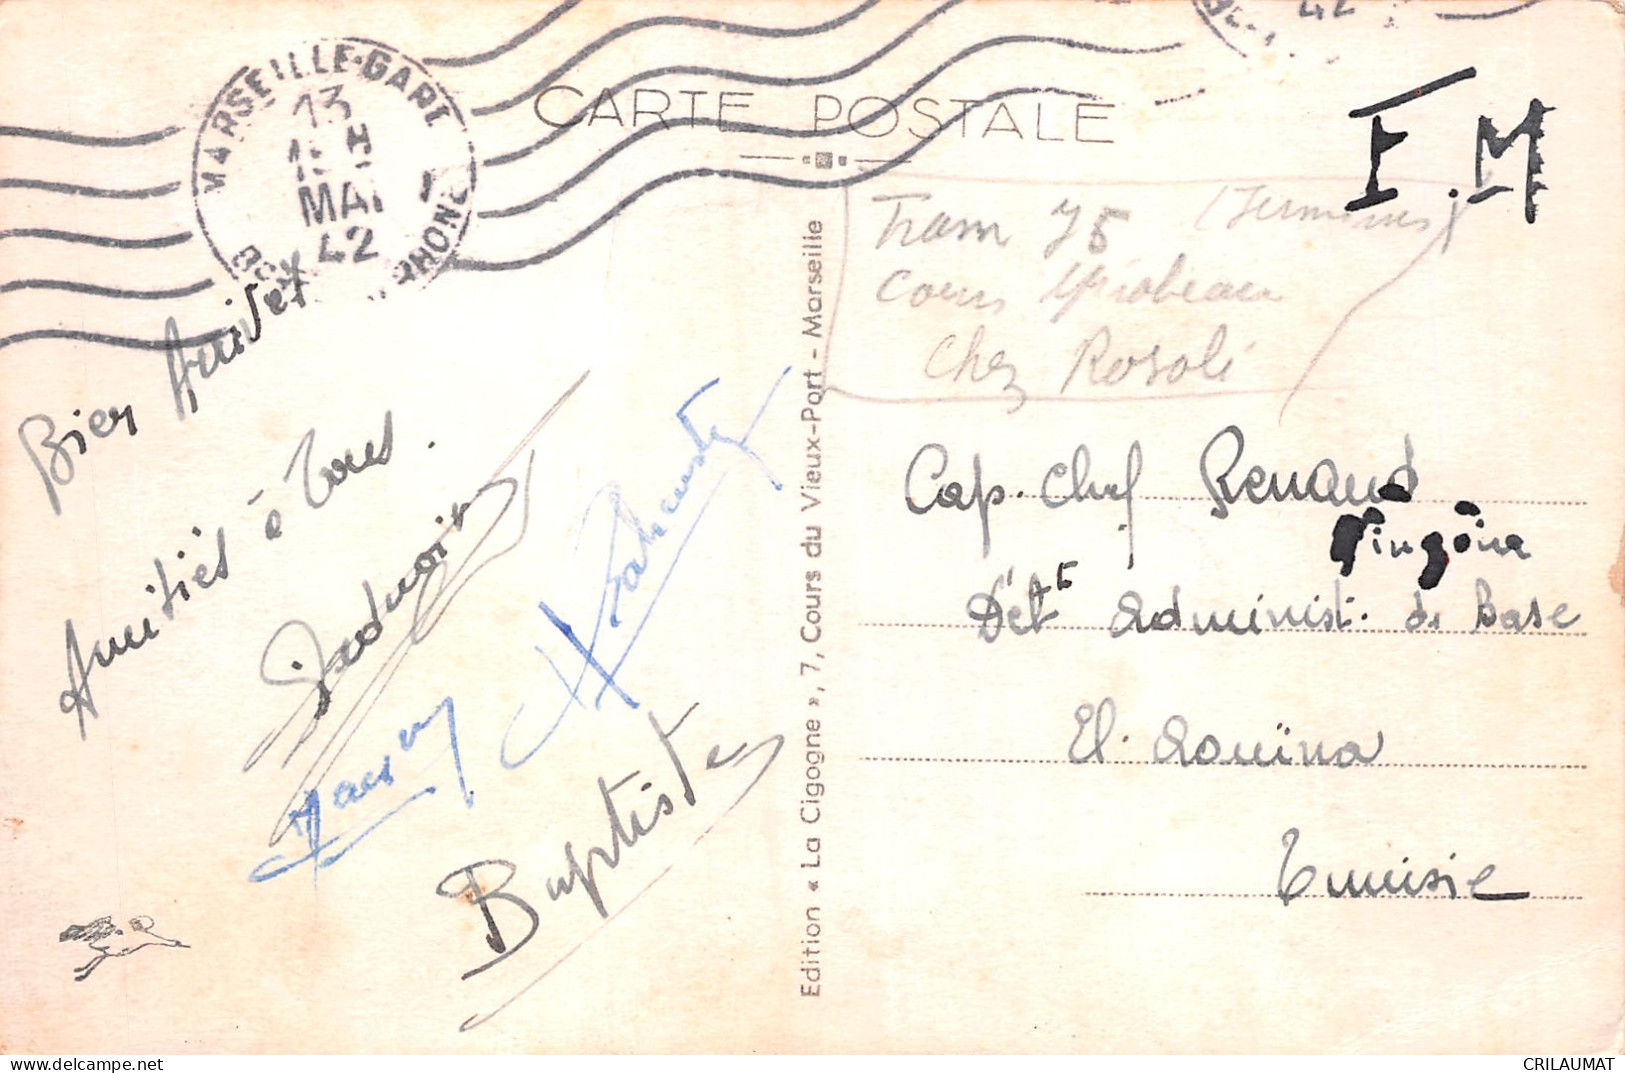 MARSEILLE-GARE
13
MAI
42
RHONE
42
CARTE POSTALE
F.M
Tram 75 (Terminus)
Cours Mirabeau
Chez Rosoli
Bien Arrivés
Amitiés à tous.
Baptiste
Edition « La Cigogne », 7, Cours du Vieux-Port - Marseille
Cap. Chef Renaud
Dét Administ. de Base
El. Aouïna
Tunisie
CRILAUMAT